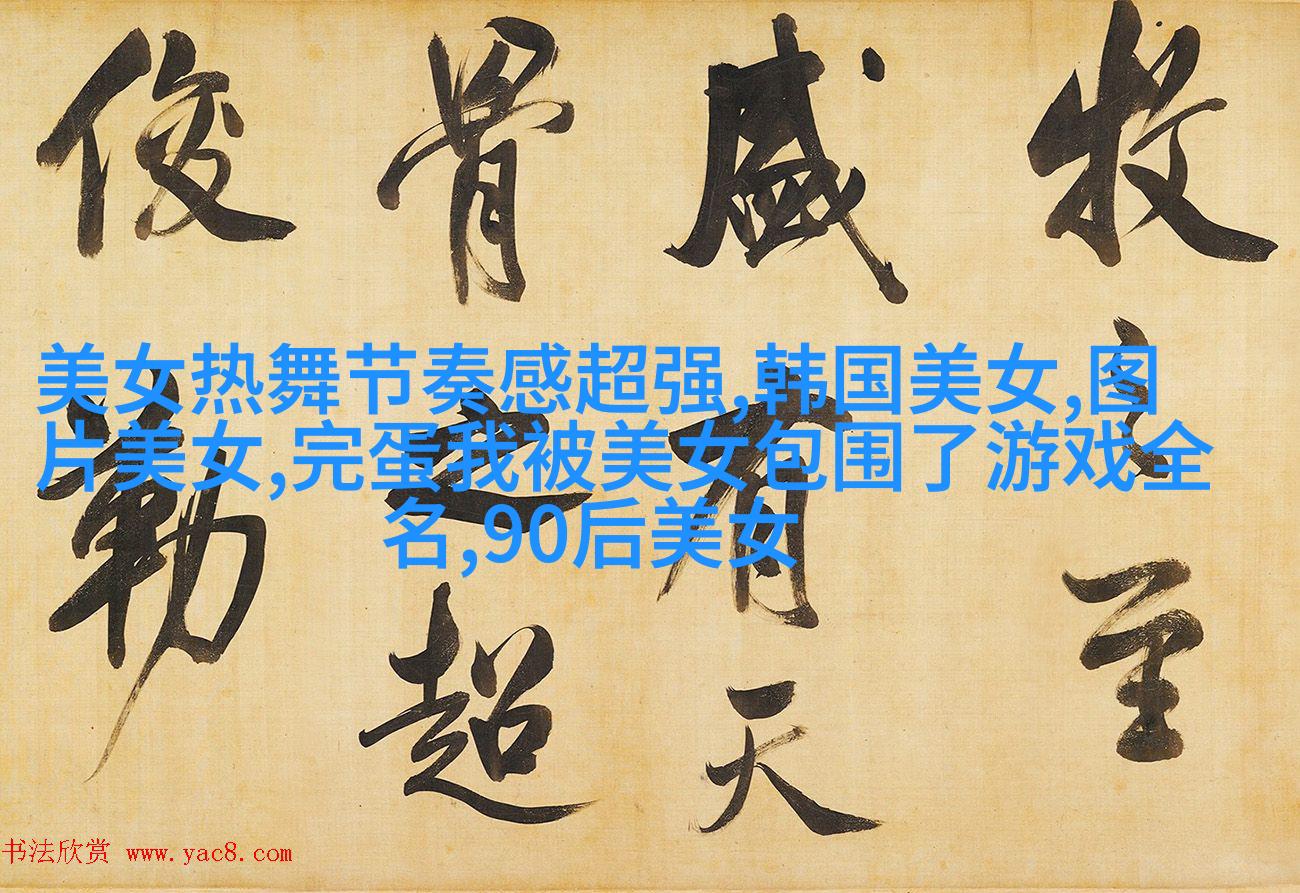 美女热舞节奏感超强,韩国美女,图
片美女,完蛋我被美女包围了游戏全
名,90后美女
牧之至
盛有天
骨之超
俊勒
书法欣赏 www.yac8.com